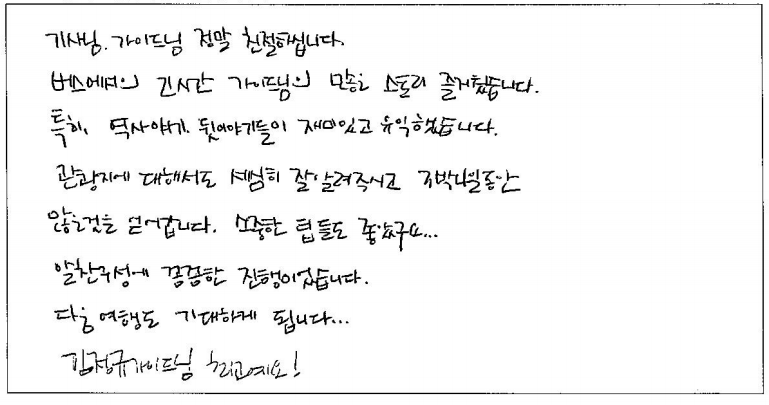 기사님, 가이드님 정말 친절하십니다.
버스에서의 긴시간 가이드님의 많은 스토리 즐거웠습니다.
특히, 역사야기, 뒷이야기들이 재미있고 유익했습니다.
관광지에 대해서도 세심히 잘 알려주시고 동안
많은것을 얻어갑니다. 소중한 팁들도 좋았구요...
알찬구성에 꼼꼼한 진행이었습니다.
다음여행도 기대하게 됩니다...
김정규가이드님 최고예요!